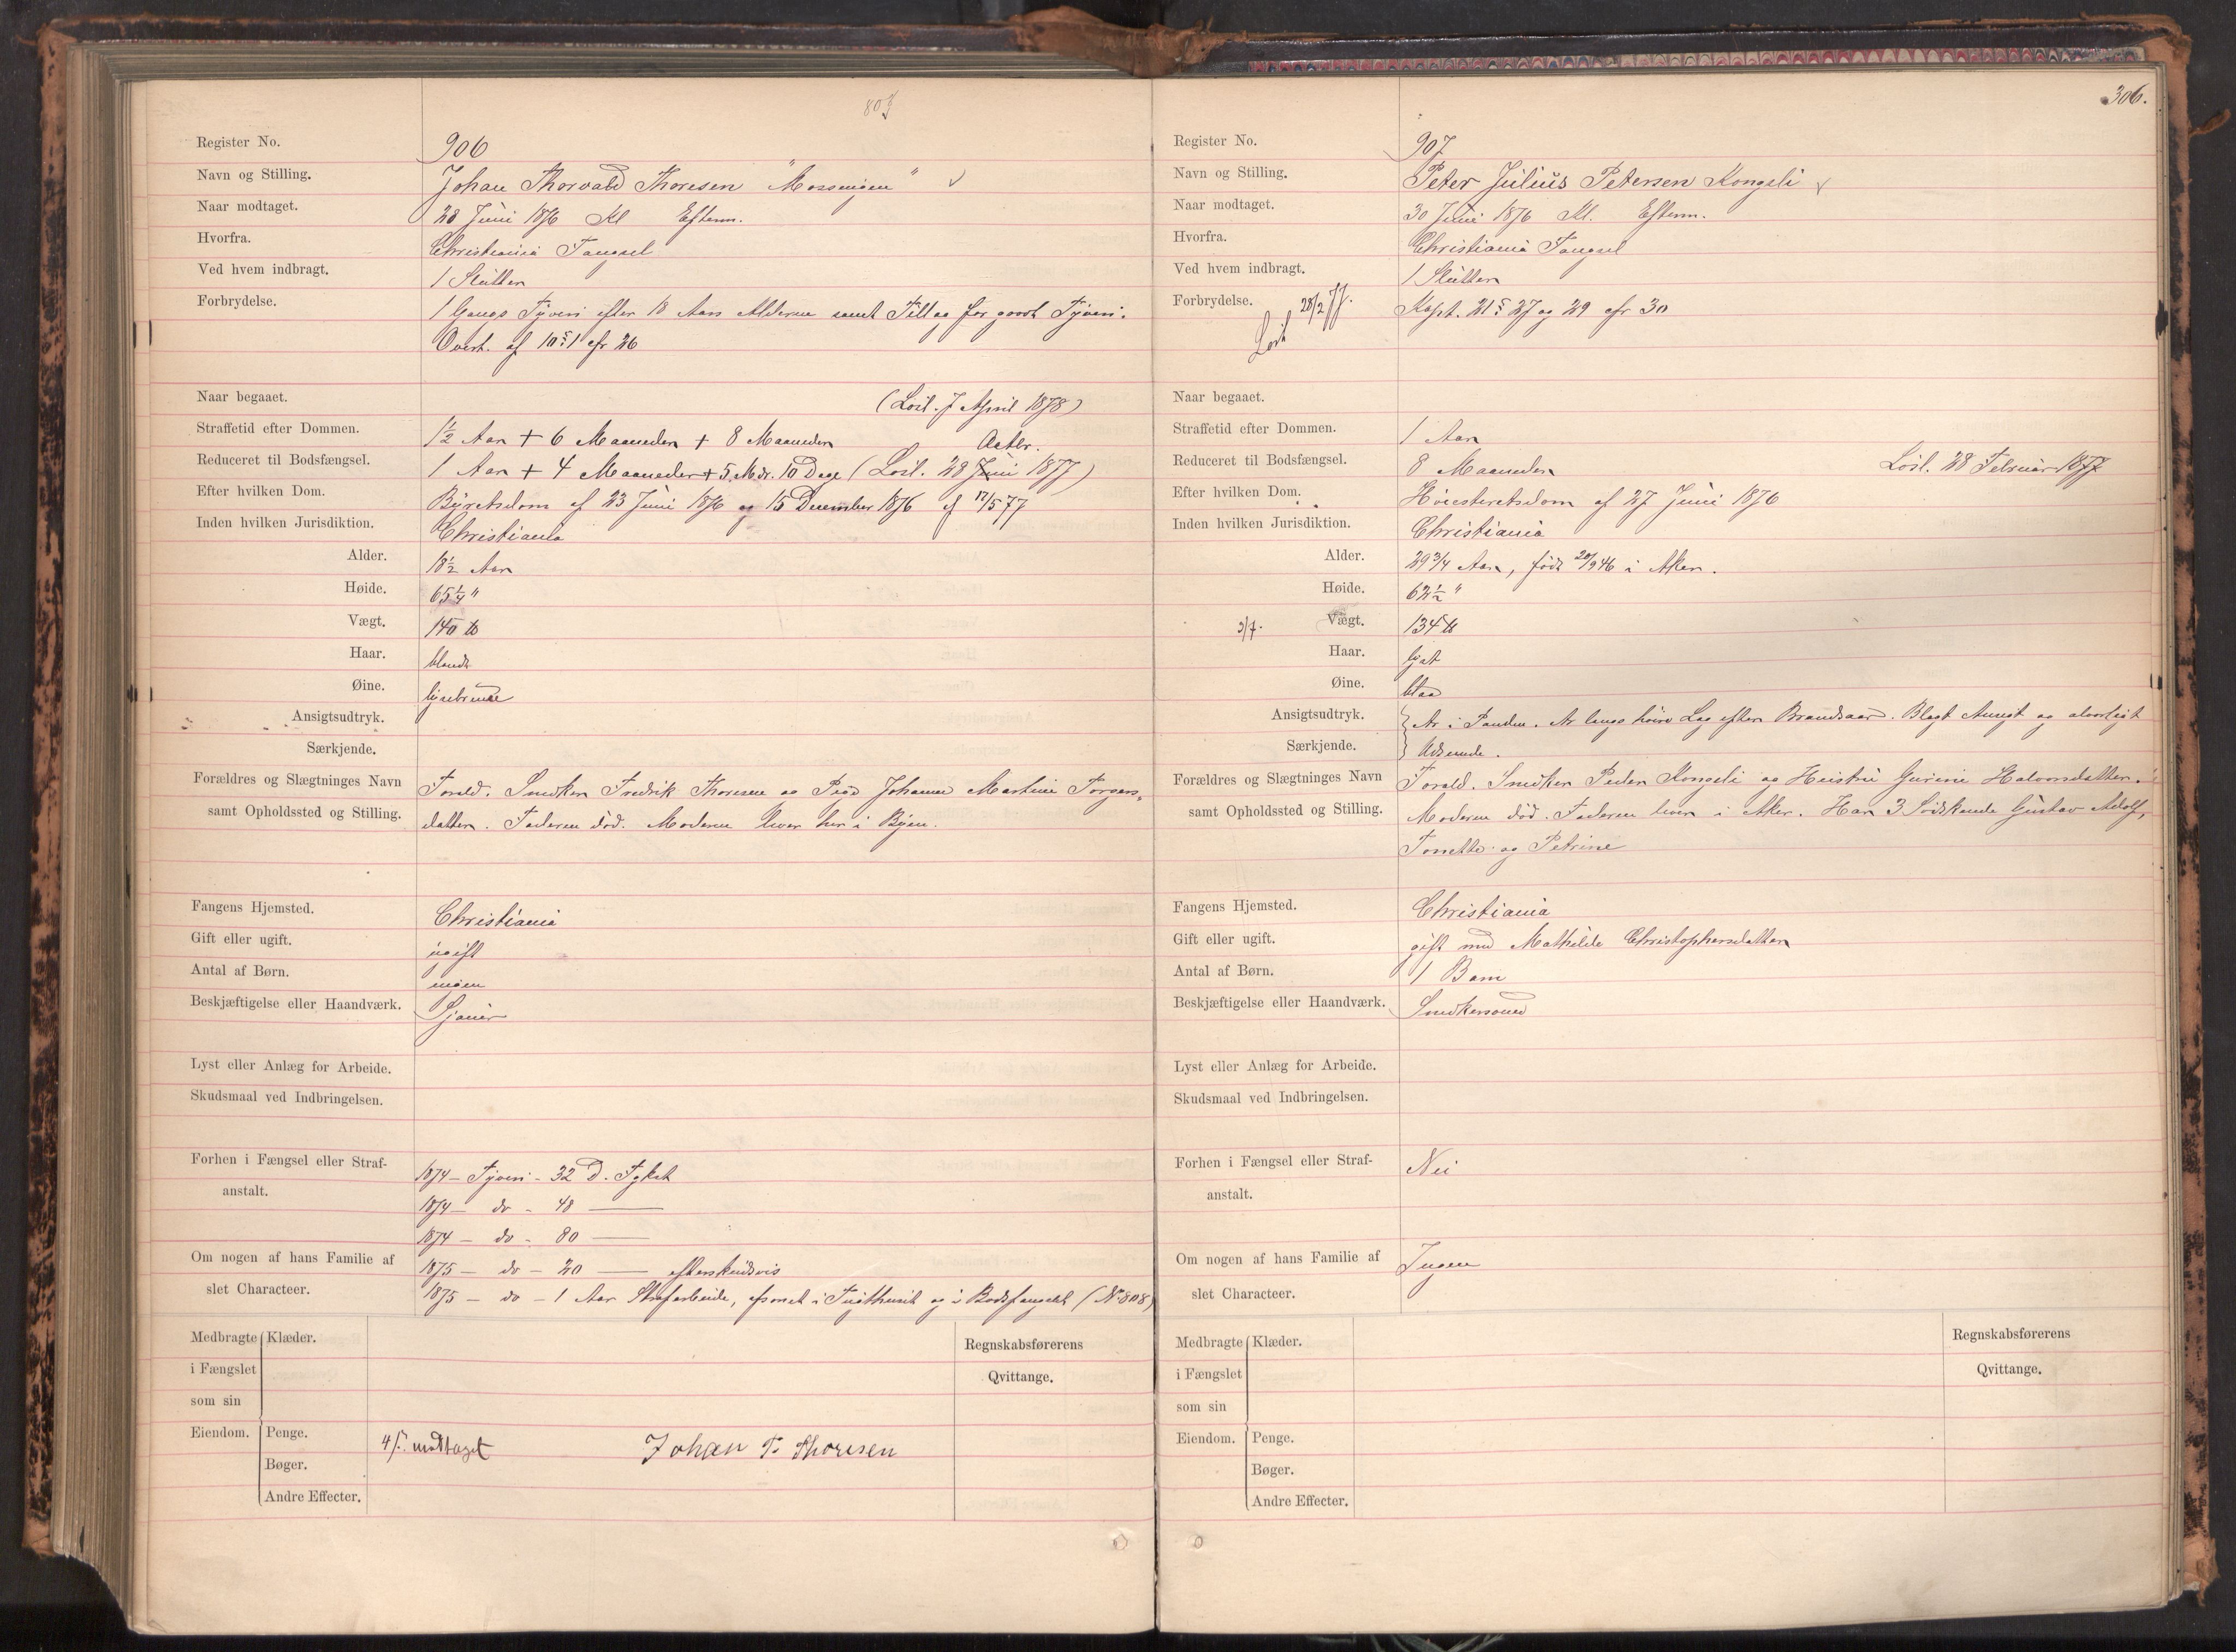 807
Register No. 906
Navn og Stilling. Johan Thorvald Thoresen "Mossingen"
Naar modtaget. 28 Juni 1876 Kl Efterm.
Hvorfra. Christiania Fangsel
Ved hvem indbragt. 1 Slutter
Forbrydelse. 1 Gangs Tyveri efter 18 Aars Alderen samt Tillæg for grovt Tyveri.
Overt. af 10 § 1 cfr 26
Naar begaaet. (Losl. 7 April 1878)
Straffetid efter Dommen. 1½ Aar + 6 Maaneder + 8 Maaneder
Octbr.
Reduceret til Bodsfængsel. 1 Aar + 4 Maaneder + 5 Mdr. 10 Dage (Losl. 28 Juni 1877)
Efter hvilken Dom. Byretsdom af 23 Juni 1876 og 15 December 1876 af 17/5 77
Inden hvilken Jurisdiktion. Christiania
Alder. 18½ Aar
Høide. 65¼"
Vægt. 140 ℔
Haar. blondt
Øine. lysebrune
Ansigtsudtryk.
Særkjende.
Forældres og Slægtninges Navn Foræld. Snedker Fredrik Thoresen og Pige Johanne Martine Torgers-
samt Opholdssted og Stilling. datter. Faderen død. Moderen lever her i Byen.
Fangens Hjemsted. Christiania
Gift eller ugift. ugift
Antal af Børn. ingen
Beskjæftigelse eller Haandværk. Sjauer
Lyst eller Anlæg for Arbeide.
Skudsmaal ved Indbringelsen.
Forhen i Fængsel eller Straf- 1874 – Tyveri – 32 D. Fgkst
anstalt. 1874 – do – 48 —
1874 – do – 80 —
Om nogen af hans Familie af 1875 – do – 20 — efterskudsvis
slet Characteer. 1875 – do – 1 Aar Strafarbeide, afsonet i Tugthuset og i Bodsfangslet (No 808)
Medbragte Klæder.
i Fængslet
som sin
Eiendom. Penge. 4/5. modtaget Johan T. Thoresen
Bøger.
Andre Effecter.
Regnskabsførerens
Qvittange.
306.
Register No. 907
Navn og Stilling. Peter Julius Petersen Kongeli
Naar modtaget. 30 Juni 1876 Kl. Efterm.
Hvorfra. Christiania Fangsel
Ved hvem indbragt. 1 Slutter
Forbrydelse. Losl 28/2 77. Kapt. 21 § 27 og 29 cfr 30
Naar begaaet.
Straffetid efter Dommen. 1 Aar
Reduceret til Bodsfængsel. 8 Maaneder Losl. 28 Februar 1877
Efter hvilken Dom. Høiesteretsdom af 27 Juni 1876
Inden hvilken Jurisdiktion. Christiania
Alder. 29¾ Aar, født 20/9 46 i Aker.
Høide. 62½"
3/7. Vægt. 134 ℔
Haar. lyst
Øine. blaa
Ansigtsudtryk. Ar i Panden. Ar langs høire Lag efter Brandsaar. Blegt Ansigt og alvorligt
Særkjende. Udseende.
Forældres og Slægtninges Navn Foræld. Snedker Peder Kongeli og Hustru Gurine Halvorsdatter.
samt Opholdssted og Stilling. Moderen død. Faderen lever i Aker. Har 3 Sødskende Gustav Adolf,
Tonette og Petrine
Fangens Hjemsted. Christiania
Gift eller ugift. gift med Mathilde Christophersdatter
Antal af Børn. 1 Barn
Beskjæftigelse eller Haandværk. Snedkersvend
Lyst eller Anlæg for Arbeide.
Skudsmaal ved Indbringelsen.
Forhen i Fængsel eller Straf- Nei
anstalt.
Om nogen af hans Familie af Ingen
slet Characteer.
Medbragte Klæder.
i Fængslet
som sin
Eiendom. Penge.
Bøger.
Andre Effecter.
Regnskabsførerens
Qvittange.